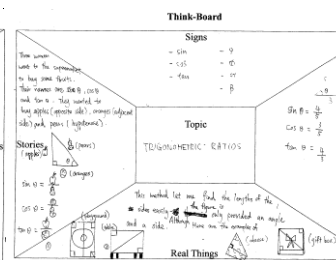 Think-Board
Signs
- sin - θ
- cos - α
- tan - σ
- β
Three women
went to the supermarket
to buy some fruits.
Their names are sin θ, cos θ
and tan θ. They wanted to
buy apples (opposite side), oranges (adjacent
side) and pears (hypotenuse).
Stories
(apples)
(pears)
(oranges)
sin θ =
cos θ =
tan θ =
Topic
TRIGONOMETRIC RATIOS
sin θ =
cos θ =
tan θ =
This method let me find the lengths of the
sides easily
the figure is
only provided an angle
and a side.
Although
Here are the examples of
(playground)
(table)
(cheese)
(gift box)
Real Things